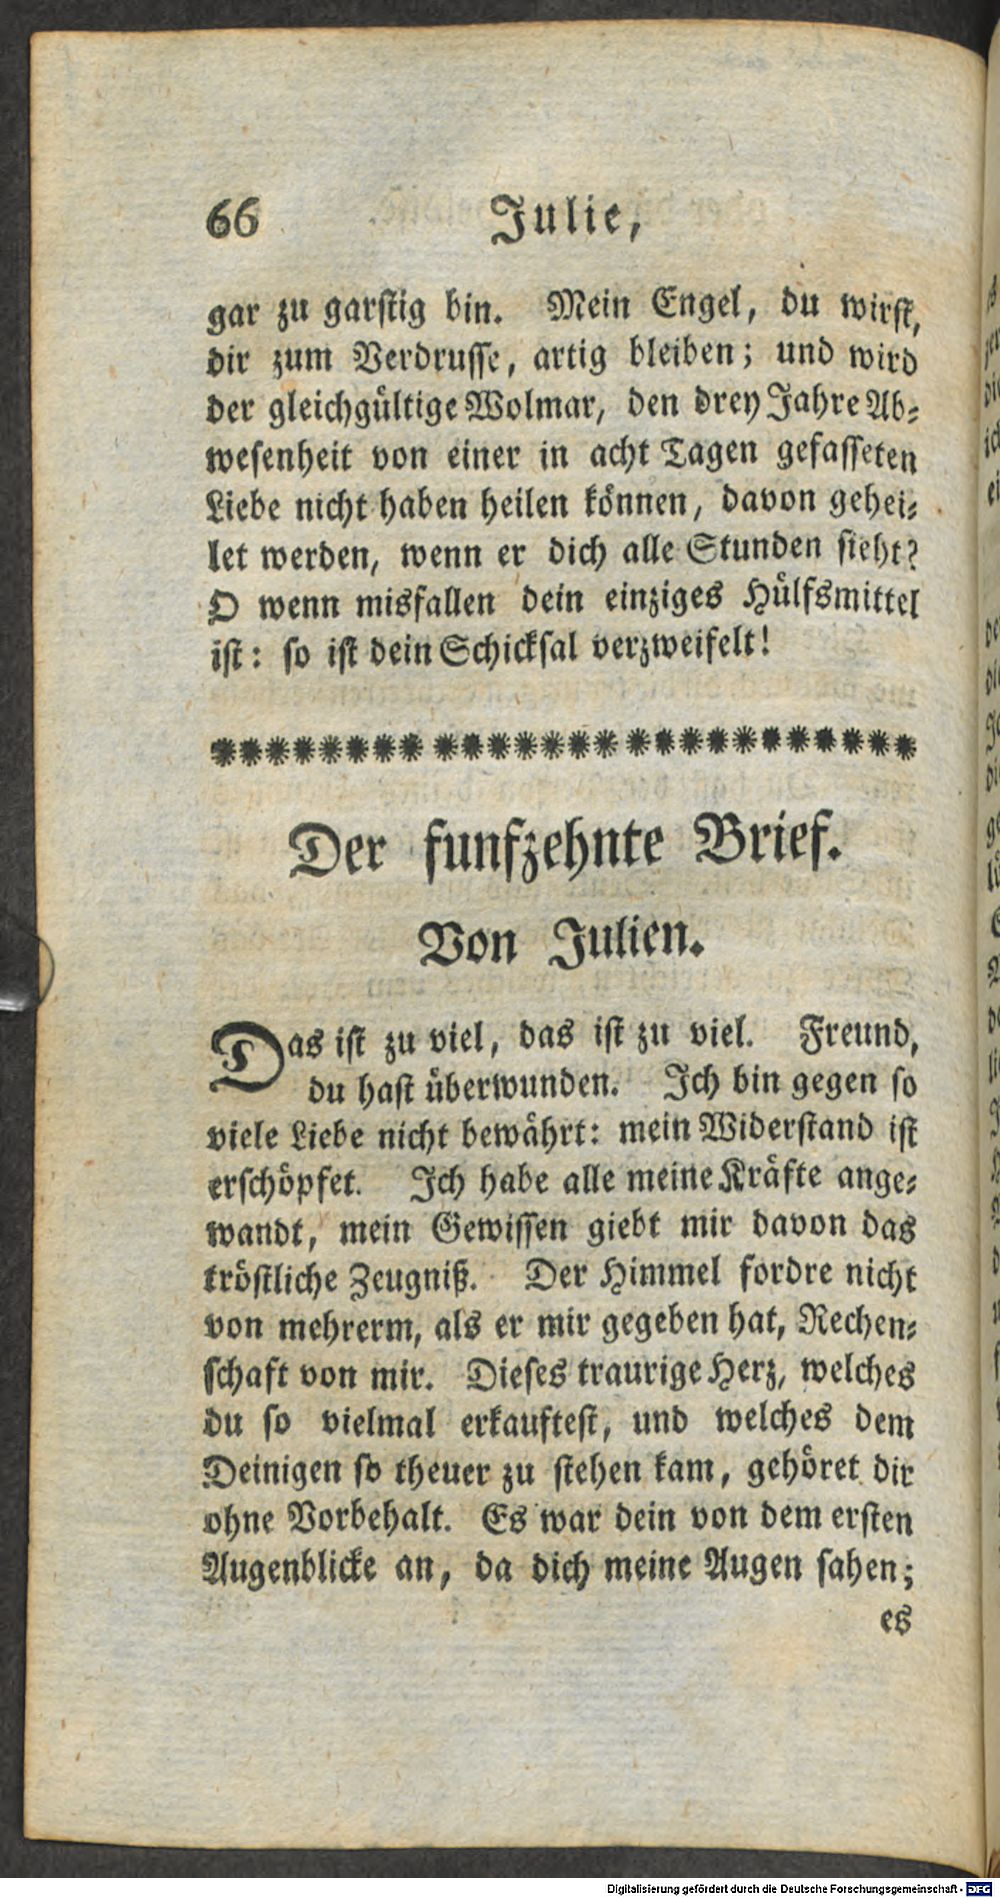 66 Julie,
gar zu garstig bin. Mein Engel, du wirst,
dir zum Verdrusse, artig bleiben; und wird
der gleichgültige Wolmar, den drey Jahre Ab-
wesenheit von einer in acht Tagen gefasseten
Liebe nicht haben heilen können, davon gehei-
let werden, wenn er dich alle Stunden sieht?
O wenn misfallen dein einziges Hülfsmittel
ist: so ist dein Schicksal verzweifelt!
Der funfzehnte Brief.
Von Julien.
Das ist zu viel, das ist zu viel. Freund,
du hast überwunden. Ich bin gegen so
viele Liebe nicht bewährt: mein Widerstand ist
erschöpfet. Ich habe alle meine Kräfte ange-
wandt, mein Gewissen giebt mir davon das
tröstliche Zeugniß. Der Himmel fordre nicht
von mehrerm, als er mir gegeben hat, Rechen-
schaft von mir. Dieses traurige Herz, welches
du so vielmal erkauftest, und welches dem
Deinigen so theuer zu stehen kam, gehöret dir
ohne Vorbehalt. Es war dein von dem ersten
Augenblicke an, da dich meine Augen sahen;
es
Digitalisierung gefördert durch die Deutsche Forschungsgemeinschaft - DFG